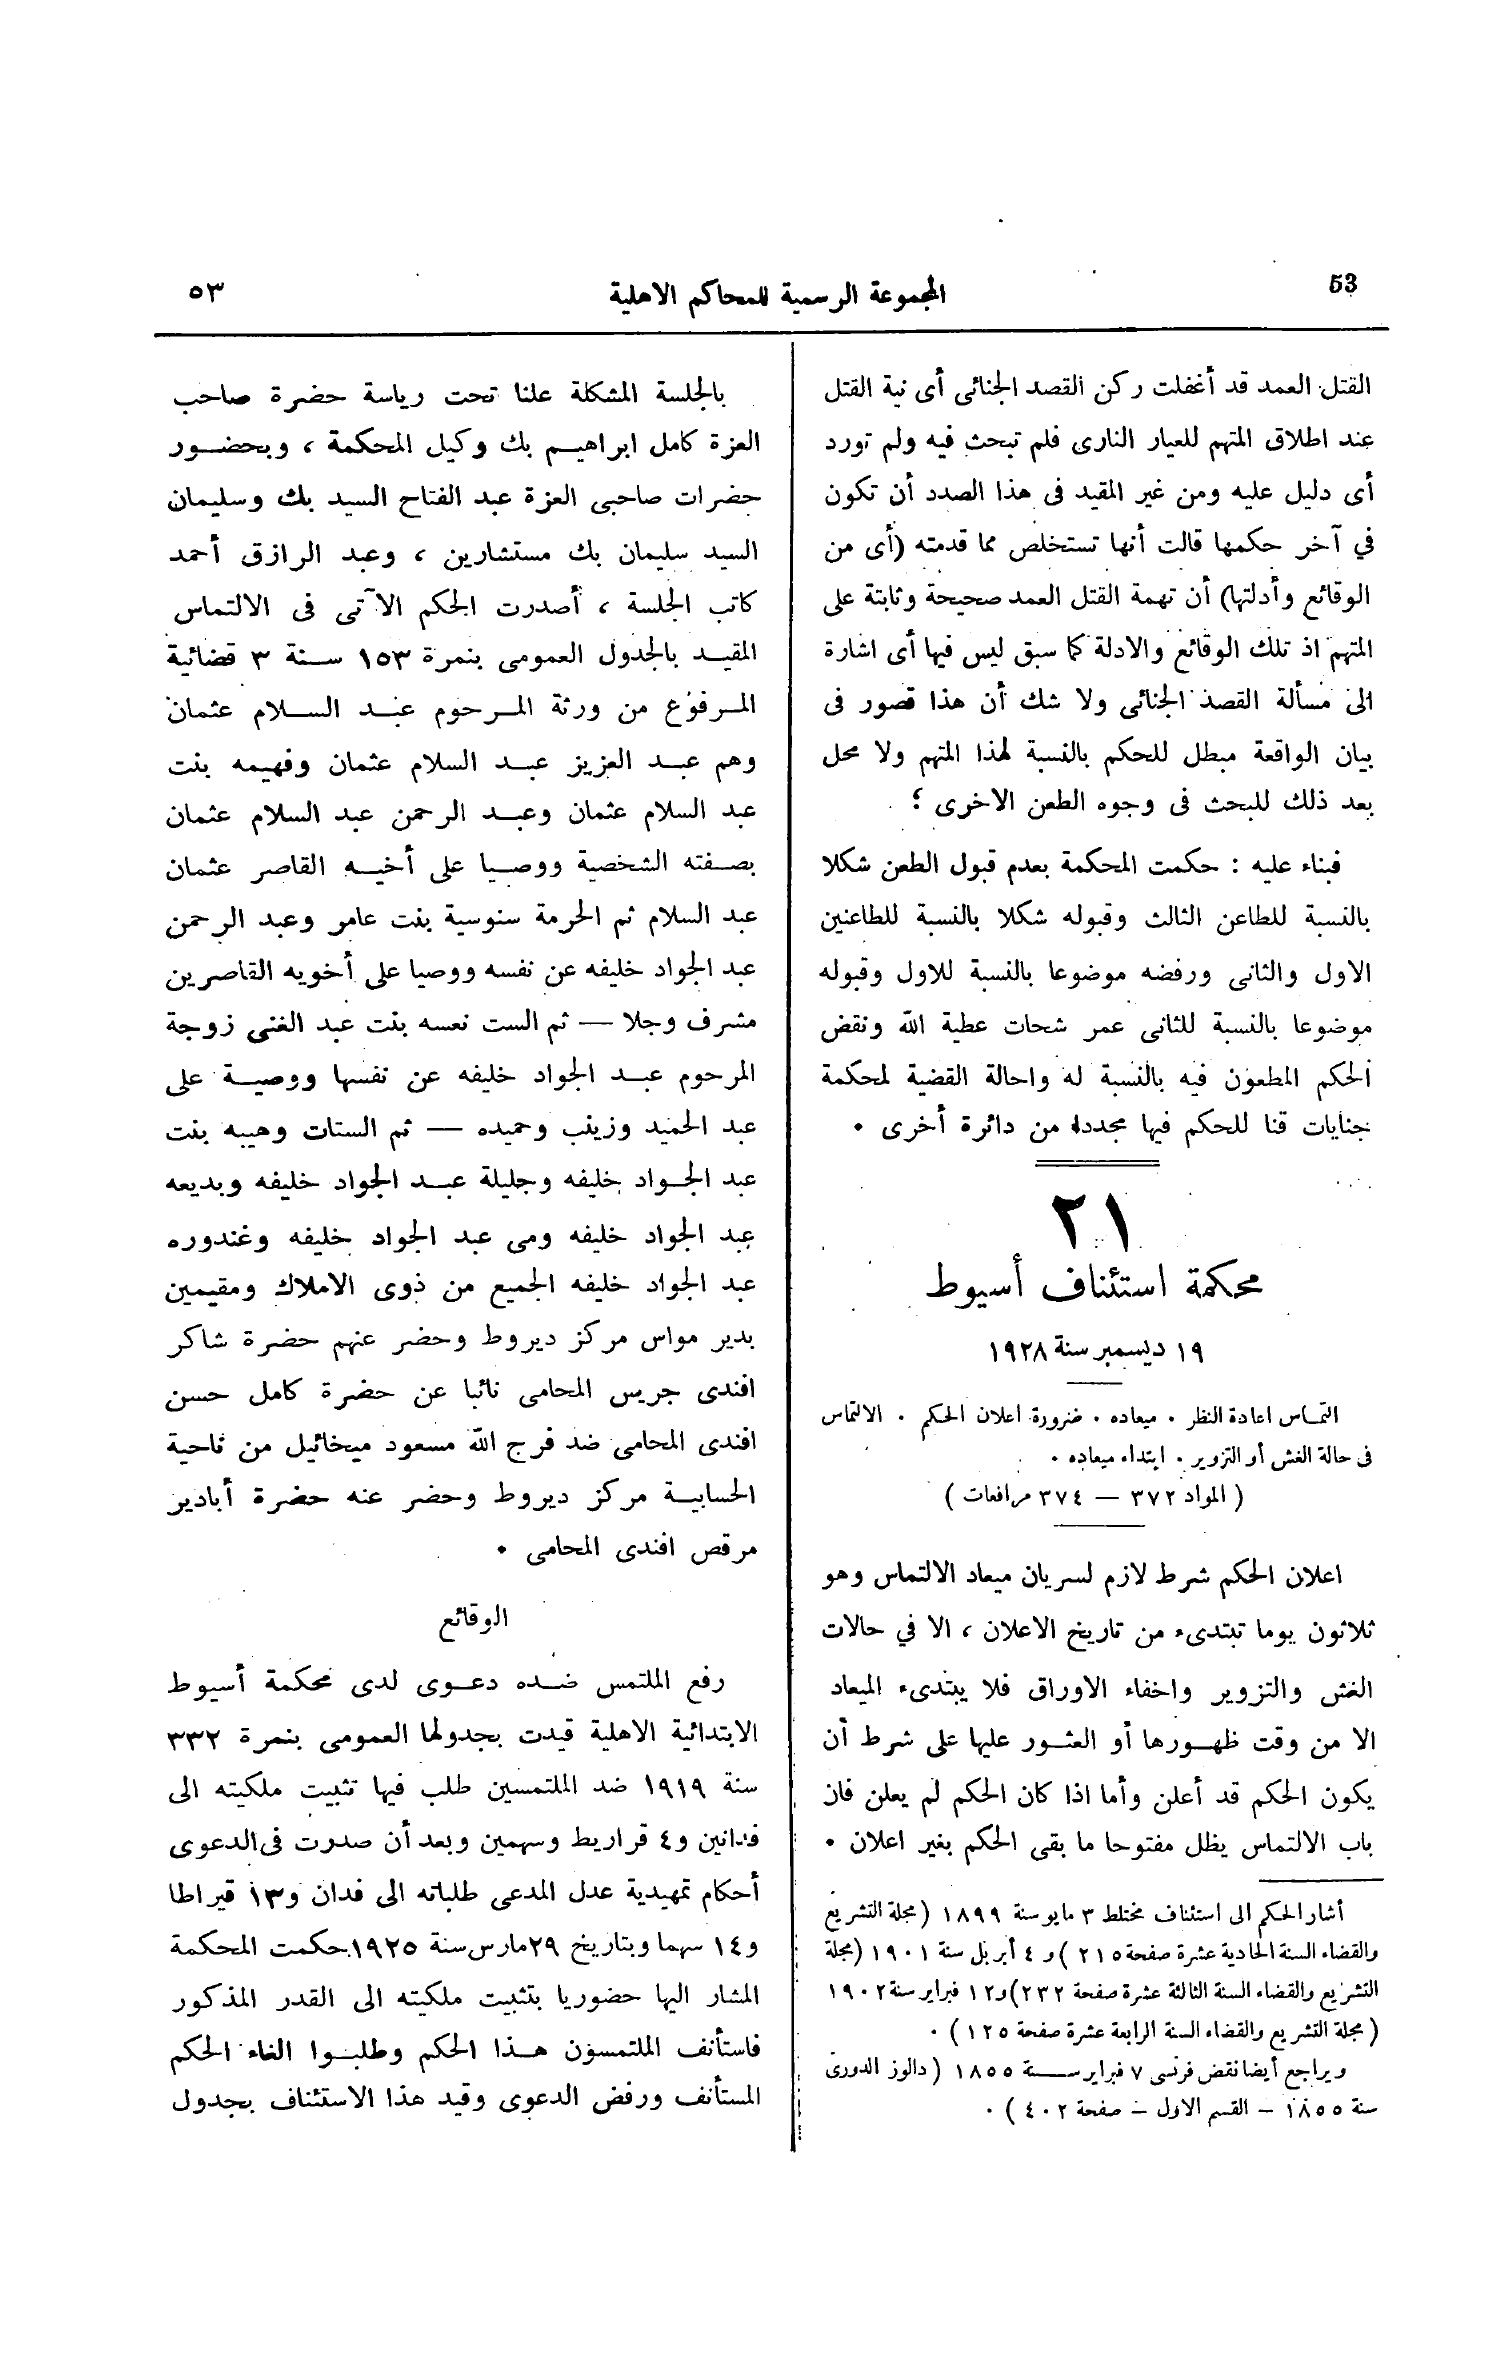 53
المجموعة الرسمية للمحاكم الاهلية
٥٣
القتل العمد قد أغفلت ركن القصد الجنائى أى نية القتل
عند اطلاق المتهم للعيار النارى فلم تبحث فيه ولم تورد
أى دليل عليه ومن غير المقيد فى هذا الصدد أن تكون
في آخر حكمها قالت أنها تستخلص مما قدمته (أى من
الوقائع وأدلتها) أن تهمة القتل العمد صحيحة وثابتة على
المتهم اذ تلك الوقائع والادلة كما سبق ليس فيها أى اشارة
الى مسألة القصد الجنائى ولا شك أن هذا قصور فى
بيان الواقعة مبطل للحكم بالنسبة لهذا المتهم ولا محل
بعد ذلك للبحث فى وجوه الطعن الاخرى ؛
فبناء عليه : حكمت المحكمة بعدم قبول الطعن شكلا
بالنسبة للطاعن الثالث وقبوله شكلا بالنسبة للطاعنين
الاول والثانى ورفضه موضوعا بالنسبة للاول وقبوله
موضوعا بالنسبة للثانى عمر شحات عطية الله ونقض
الحكم المطعون فيه بالنسبة له واحالة القضية لمحكمة
جنايات قنا للحكم فيها مجددا من دائرة أخرى .
٢١
محكمة استئناف أسيوط
١٩ ديسمبر سنة ١٩٢٨
التماس اعادة النظر . ميعاده . ضرورة اعلان الحكم . الالتماس
فى حالة الغش أو التزوير . ابتداء ميعاده .
( المواد ٣٧٢ — ٣٧٤ مرافعات )
اعلان الحكم شرط لازم لسريان ميعاد الالتماس وهو
ثلاثون يوما تبتدىء من تاريخ الاعلان ، الا في حالات
الغش والتزوير واخفاء الاوراق فلا يبتدىء الميعاد
الا من وقت ظهورها أو العثور عليها على شرط أن
يكون الحكم قد أعلن وأما اذا كان الحكم لم يعلن فان
باب الالتماس يظل مفتوحا ما بقى الحكم بغير اعلان .
أشار الحكم الى استئناف مختلط ٣ مايو سنة ١٨٩٩ (مجلة التشريع
والقضاء السنة الحادية عشرة صفحة ٢١٥ ) و ٤ أبريل سنة ١٩٠١ (مجلة
التشريع والقضاء السنة الثالثة عشرة صفحة ٢٣٢) و١٢ فبراير سنة ١٩٠٢
( مجلة التشريع والقضاء السنة الرابعة عشرة صفحة ١٢٥ ) .
ويراجع أيضا نقض فرنسى ٧ فبراير سنة ١٨٥٥ ( دالوز الدورى
سنة ١٨٥٥ – القسم الاول – صفحة ٤٠٢ ) .
بالجلسة المشكلة علنا تحت رياسة حضرة صاحب
العزة كامل ابراهيم بك وكيل المحكمة ، وبحضور
حضرات صاحبى العزة عبد الفتاح السيد بك وسليمان
السيد سليمان بك مستشارين ، وعبد الرازق أحمد
كاتب الجلسة ، أصدرت الحكم الآتى فى الالتماس
المقيد بالجدول العمومى بنمرة ١٥٣ سنة ٣ قضائية
المرفوع من ورثة المرحوم عبد السلام عثمان
وهم عبد العزيز عبد السلام عثمان وفهيمه بنت
عبد السلام عثمان وعبد الرحمن عبد السلام عثمان
بصفته الشخصية ووصيا على أخيه القاصر عثمان
عبد السلام ثم الحرمة سنوسية بنت عامر وعبد الرحمن
عبد الجواد خليفه عن نفسه ووصيا على أخويه القاصرين
مشرف وجلا — ثم الست نعسه بنت عبد الغنى زوجة
المرحوم عبد الجواد خليفه عن نفسها ووصية على
عبد الحميد وزينب وحميده — ثم الستات وهيبه بنت
عبد الجواد خليفه وجليلة عبد الجواد خليفه وبديعه
عبد الجواد خليفه ومى عبد الجواد خليفه وغندوره
عبد الجواد خليفه الجميع من ذوى الاملاك ومقيمين
بدير مواس مركز ديروط وحضر عنهم حضرة شاكر
افندى جريس المحامى نائبا عن حضرة كامل حسن
افندى المحامى ضد فرج الله مسعود ميخائيل من ناحية
الحسابية مركز ديروط وحضر عنه حضرة أبادير
مرقص افندى المحامى .
الوقائع
رفع الملتمس ضده دعوى لدى محكمة أسيوط
الابتدائية الاهلية قيدت بجدولها العمومى بنمرة ٣٣٢
سنة ١٩١٩ ضد الملتمسين طلب فيها تثبيت ملكيته الى
فدانين و٤ قراريط وسهمين وبعد أن صدرت فى الدعوى
أحكام تمهيدية عدل المدعى طلباته الى فدان و١٣ قيراطا
و١٤ سهما وبتاريخ ٢٩ مارس سنة ١٩٢٥ حكمت المحكمة
المشار اليها حضوريا بتثبيت ملكيته الى القدر المذكور
فاستأنف الملتمسون هذا الحكم وطلبوا الغاء الحكم
المستأنف ورفض الدعوى وقيد هذا الاستئناف بجدول